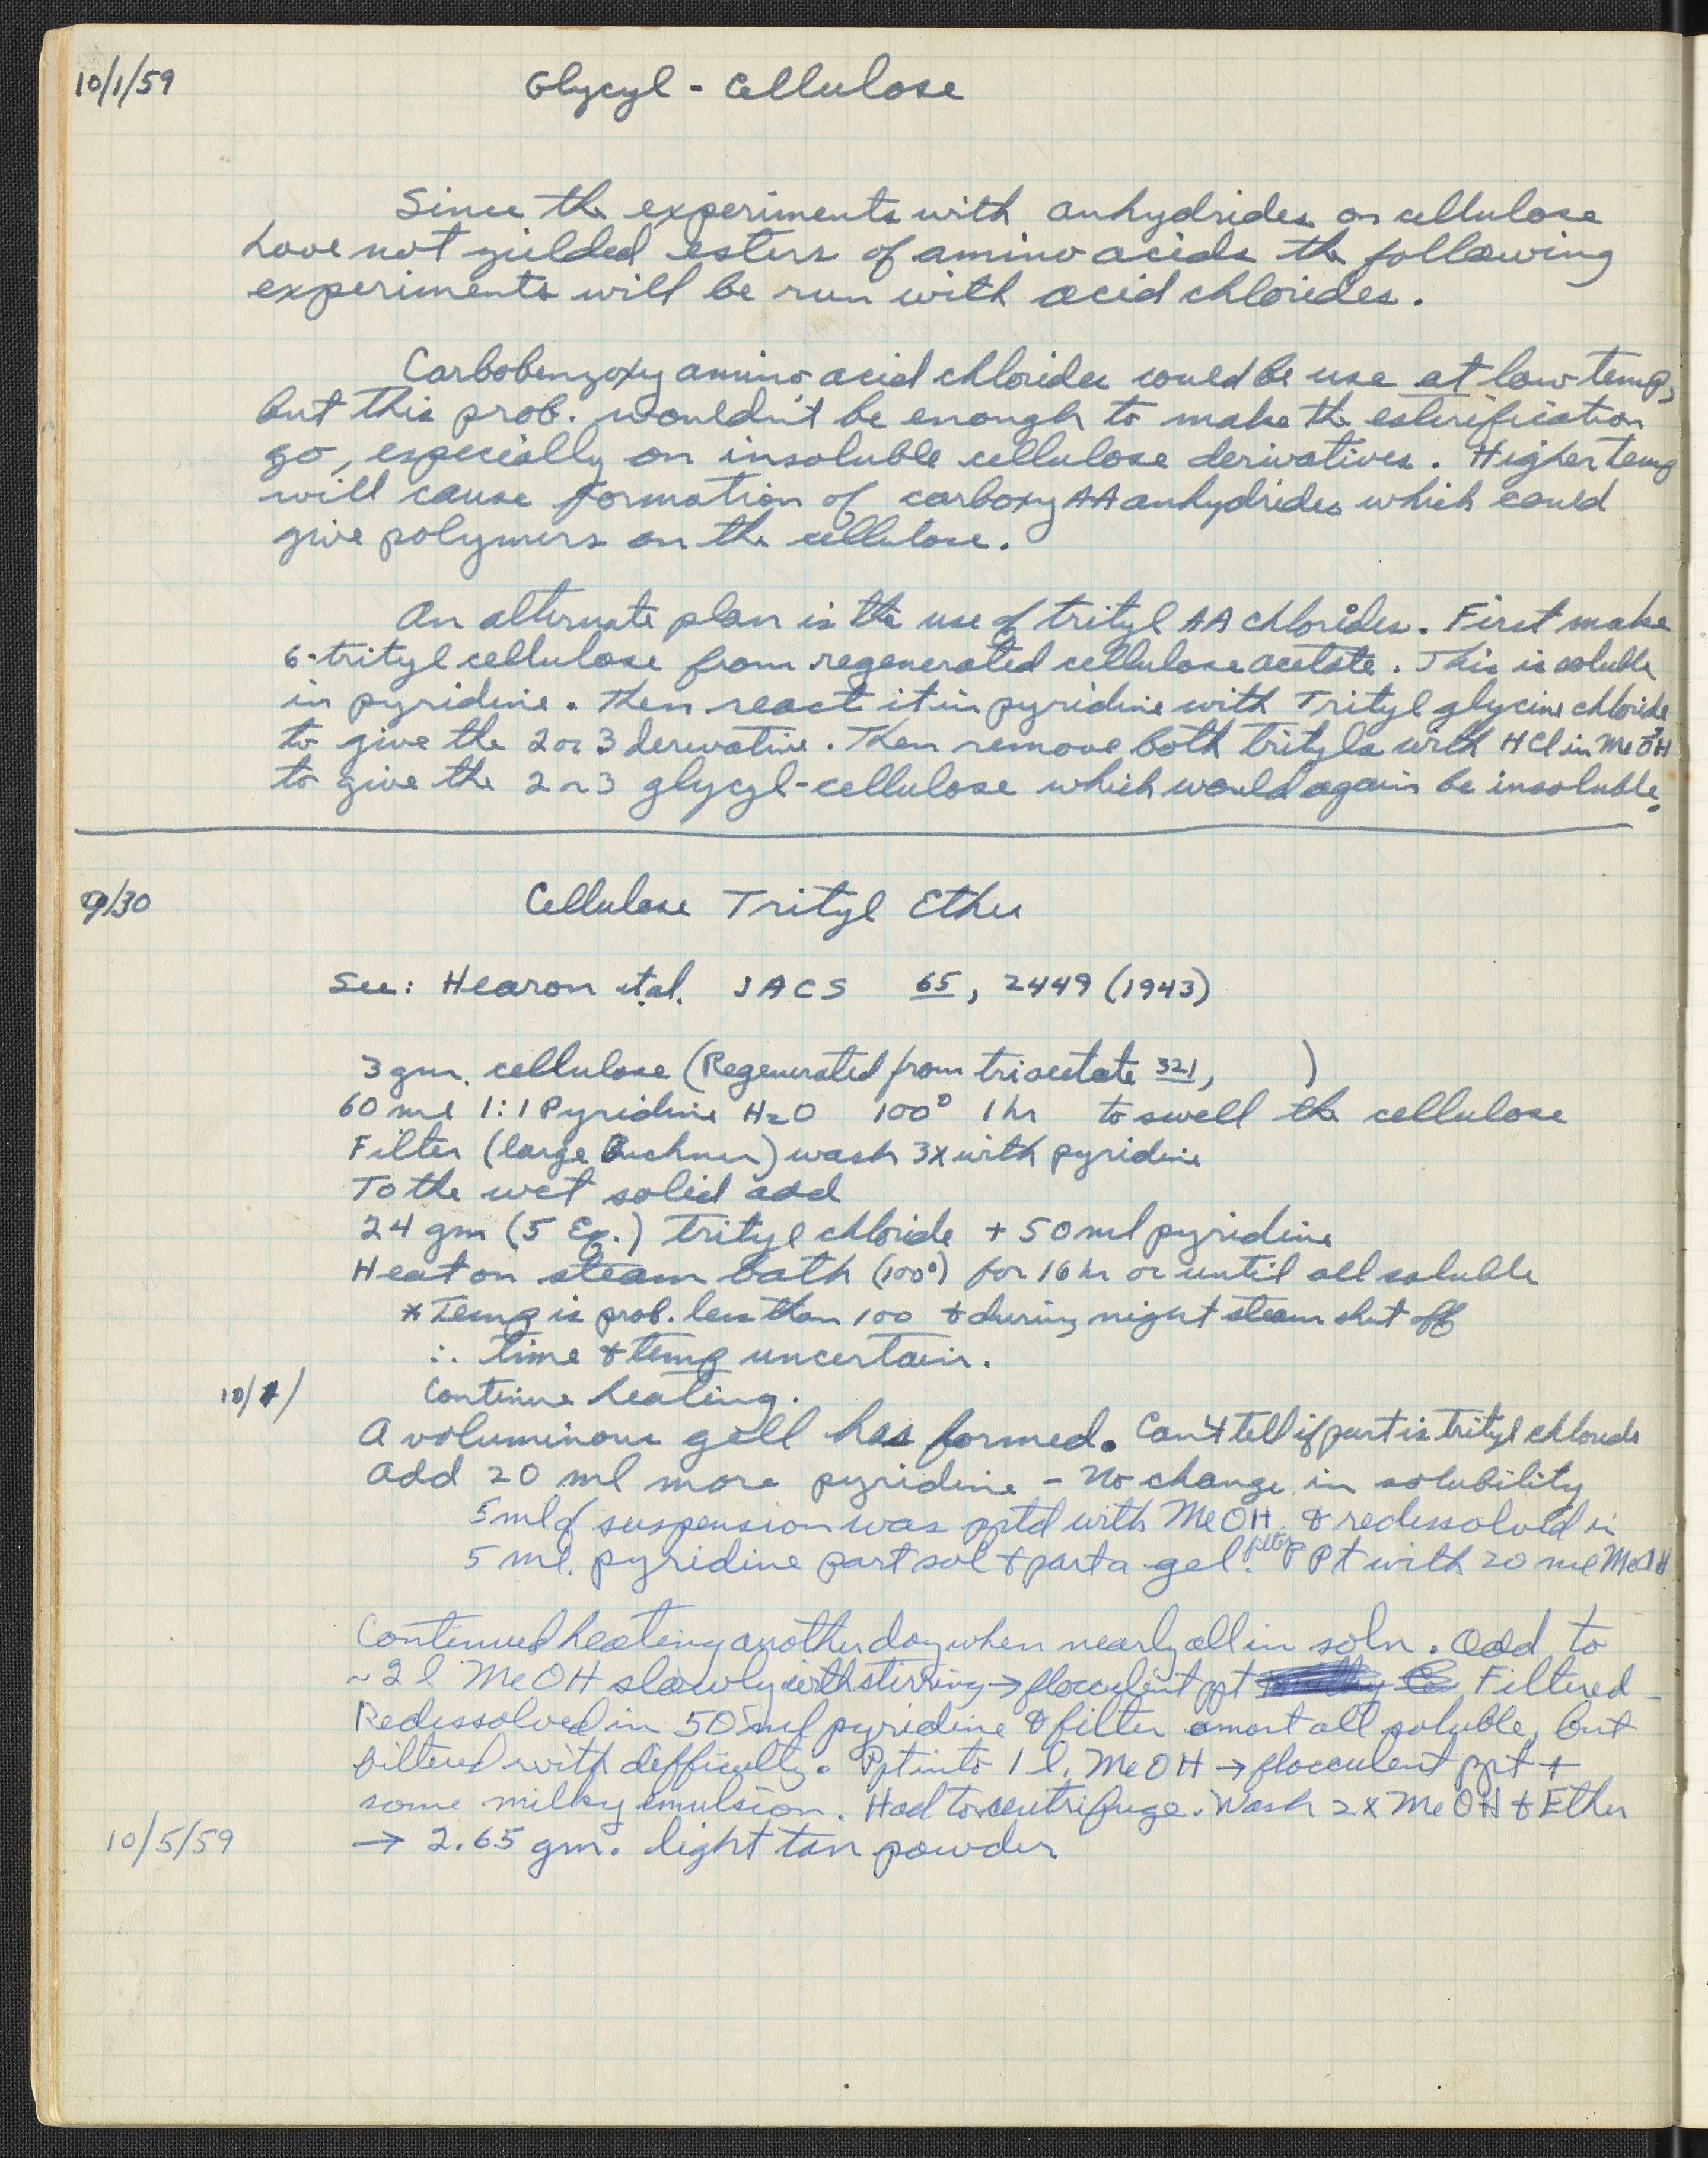 10/1/59 Glycyl - Cellulose
Since the experiments with anhydrides on cellulose
have not yielded esters of amino acids the following
experiments will be run with acid chlorides.
Carbobenzoxy amino acid chlorides could be use at low temp,
but this prob. wouldn't be enough to make the esterification
go, especially on insoluble cellulose derivatives. Higher temp
will cause formation of carboxy AA anhydrides which could
give polymers on the cellulose.
An alternate plan is the use of trityl AA chlorides. First make
6-trityl cellulose from regenerated cellulose acetate. This is soluble
in pyridine. Then react it in pyridine with Trityl glycine chloride
to give the 2 or 3 derivative. Then remove both trityls with HCl in MeOH
to give the 2 or 3 glycyl-cellulose which would again be insoluble.
9/30 Cellulose Trityl Ether
See: Hearon et al. JACS 65, 2449 (1943)
3 gm. cellulose (Regenerated from triacetate 321, )
60 ml 1:1 Pyridine H2O 100° 1 hr to swell the cellulose
Filter (large Buchner) wash 3x with pyridine
To the wet solid add
24 gm (5 Eq.) Trityl chloride + 50 ml pyridine
Heat on steam bath (100°) for 16 hr or until all soluble
* Temp is prob. less than 100 + during night steam shut off
∴ time + temp uncertain.
10/1/ Continue heating.
A voluminous gell has formed. Can't tell if part is trityl chloride
Add 20 ml more pyridine - No change in solubility
5 ml of suspension was pptd with MeOH & redissolved in
5 ml. pyridine part sol + part a gel. filt Ppt with 20 ml MeOH
Continued heating another day when nearly all in soln. Add to
~ 2 l MeOH slowly with stirring → flocculent ppt Filtered
Redissolved in 50 ml pyridine & filter amost all soluble, but
filtered with difficulty. Ppt into 1 l. MeOH → flocculent ppt +
some milky emulsion. Had to centrifuge. Wash 2x MeOH + Ether
10/5/59 → 2.65 gm. light tan powder